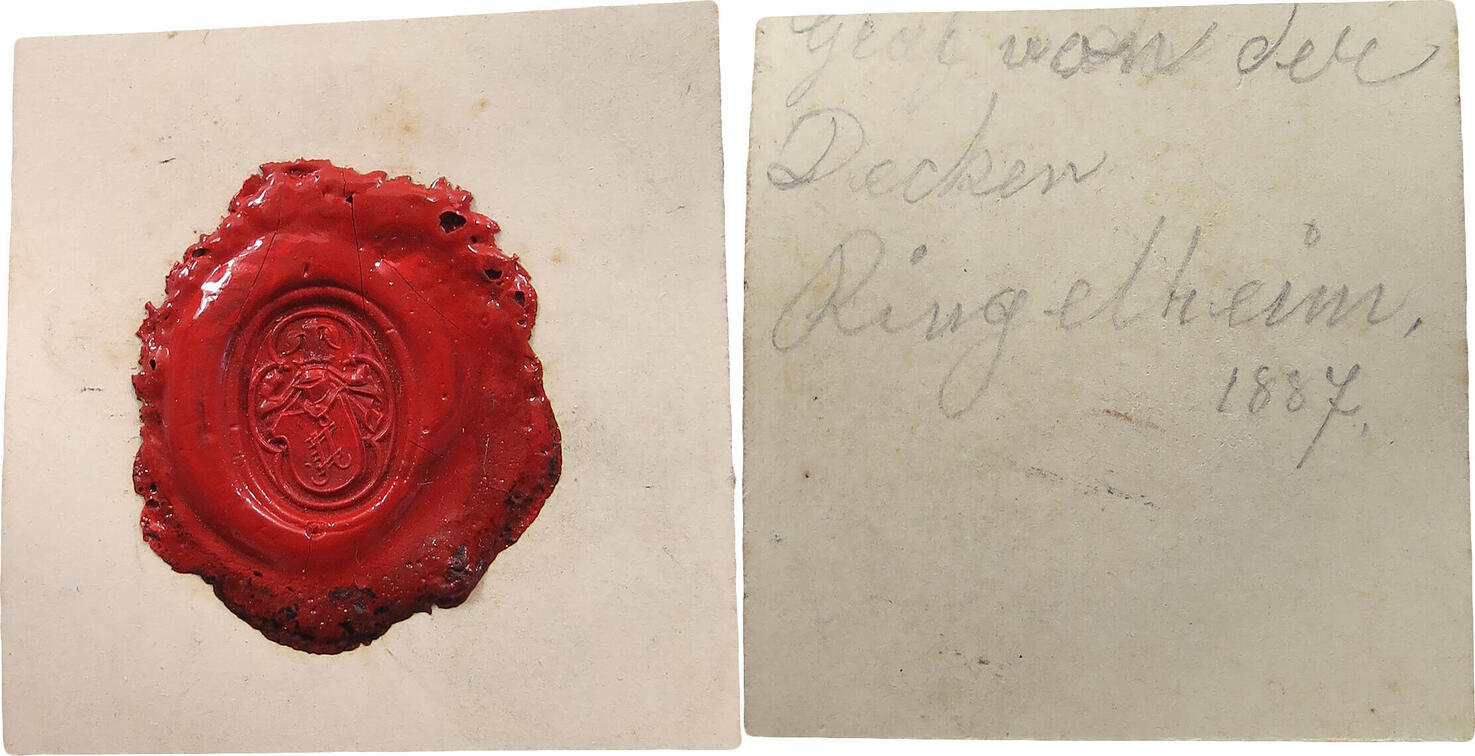 Graf von der
Decken
Ringelheim.
1887.